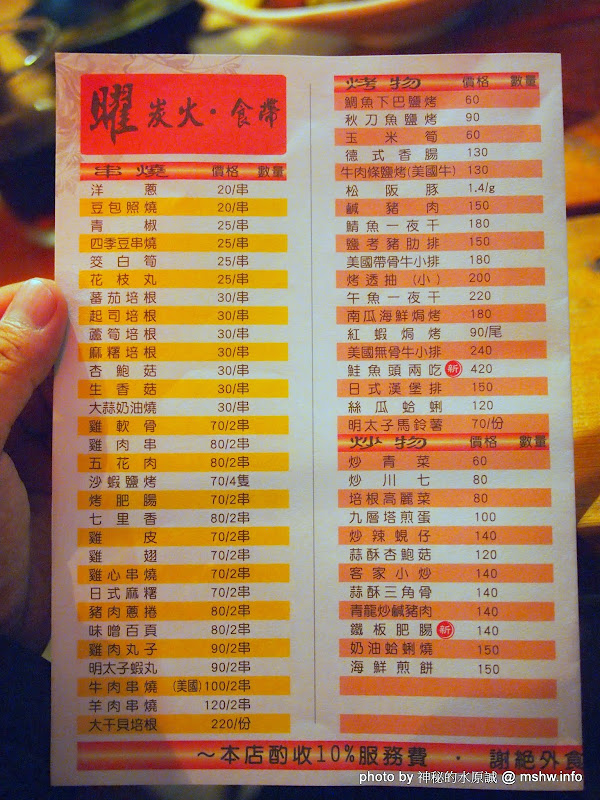 曜 炭火·食帶
串燒 價格 數量
洋蔥 20/串
豆包照燒 20/串
青椒 25/串
四季豆串燒 25/串
筊白筍 25/串
花枝丸 25/串
蕃茄培根 30/串
起司培根 30/串
蘆筍培根 30/串
麻糬培根 30/串
杏鮑菇 30/串
生香菇 30/串
大蒜奶油燒 30/串
雞軟骨 70/2串
雞肉串 80/2串
五花肉 80/2串
沙蝦鹽烤 70/4隻
烤肥腸 70/2串
七里香 80/2串
雞皮 70/2串
雞翅 70/2串
雞心串燒 70/2串
日式麻糬 70/2串
豬肉蔥捲 80/2串
味噌百頁 80/2串
雞肉丸子 90/2串
明太子蝦丸 90/2串
牛肉串燒 (美國) 100/2串
羊肉串燒 120/2串
大干貝培根 220/份
烤物 價格 數量
鯛魚下巴鹽烤 60
秋刀魚鹽烤 90
玉米筍 60
德式香腸 130
牛肉條鹽烤(美國牛) 130
松阪豚 1.4/g
鹹豬肉 150
鯖魚一夜干 180
鹽考豬肋排 150
美國帶骨牛小排 180
烤透抽 (小) 200
午魚一夜干 220
南瓜海鮮焗烤 180
紅蝦焗烤 90/尾
美國無骨牛小排 240
鮭魚頭兩吃 新 420
日式漢堡排 150
絲瓜蛤蜊 120
明太子馬鈴薯 70/份
炒物 價格 數量
炒青菜 60
炒川七 80
培根高麗菜 80
九層塔煎蛋 100
炒辣蜆仔 140
蒜酥杏鮑菇 120
客家小炒 140
蒜酥三角骨 140
青龍炒鹹豬肉 140
鐵板肥腸 新 140
奶油蛤蜊燒 150
海鮮煎餅 150
～本店酌收10%服務費 · 謝絕外食
photo by 神秘的水原誠 @ mshw.info